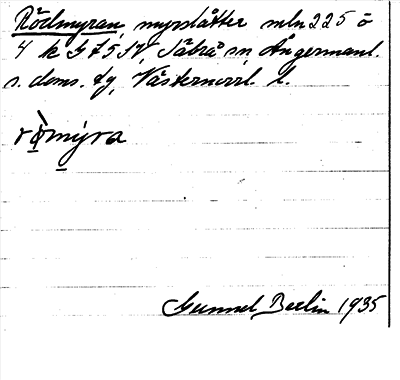 Rödmyran, myrslåtter mln 225 ö
4 k G f 5 17, Säbrå sn, Ångermanl.
s. doms. fg, Västernorrl. l.
römýra
Gunnel Berlin 1935